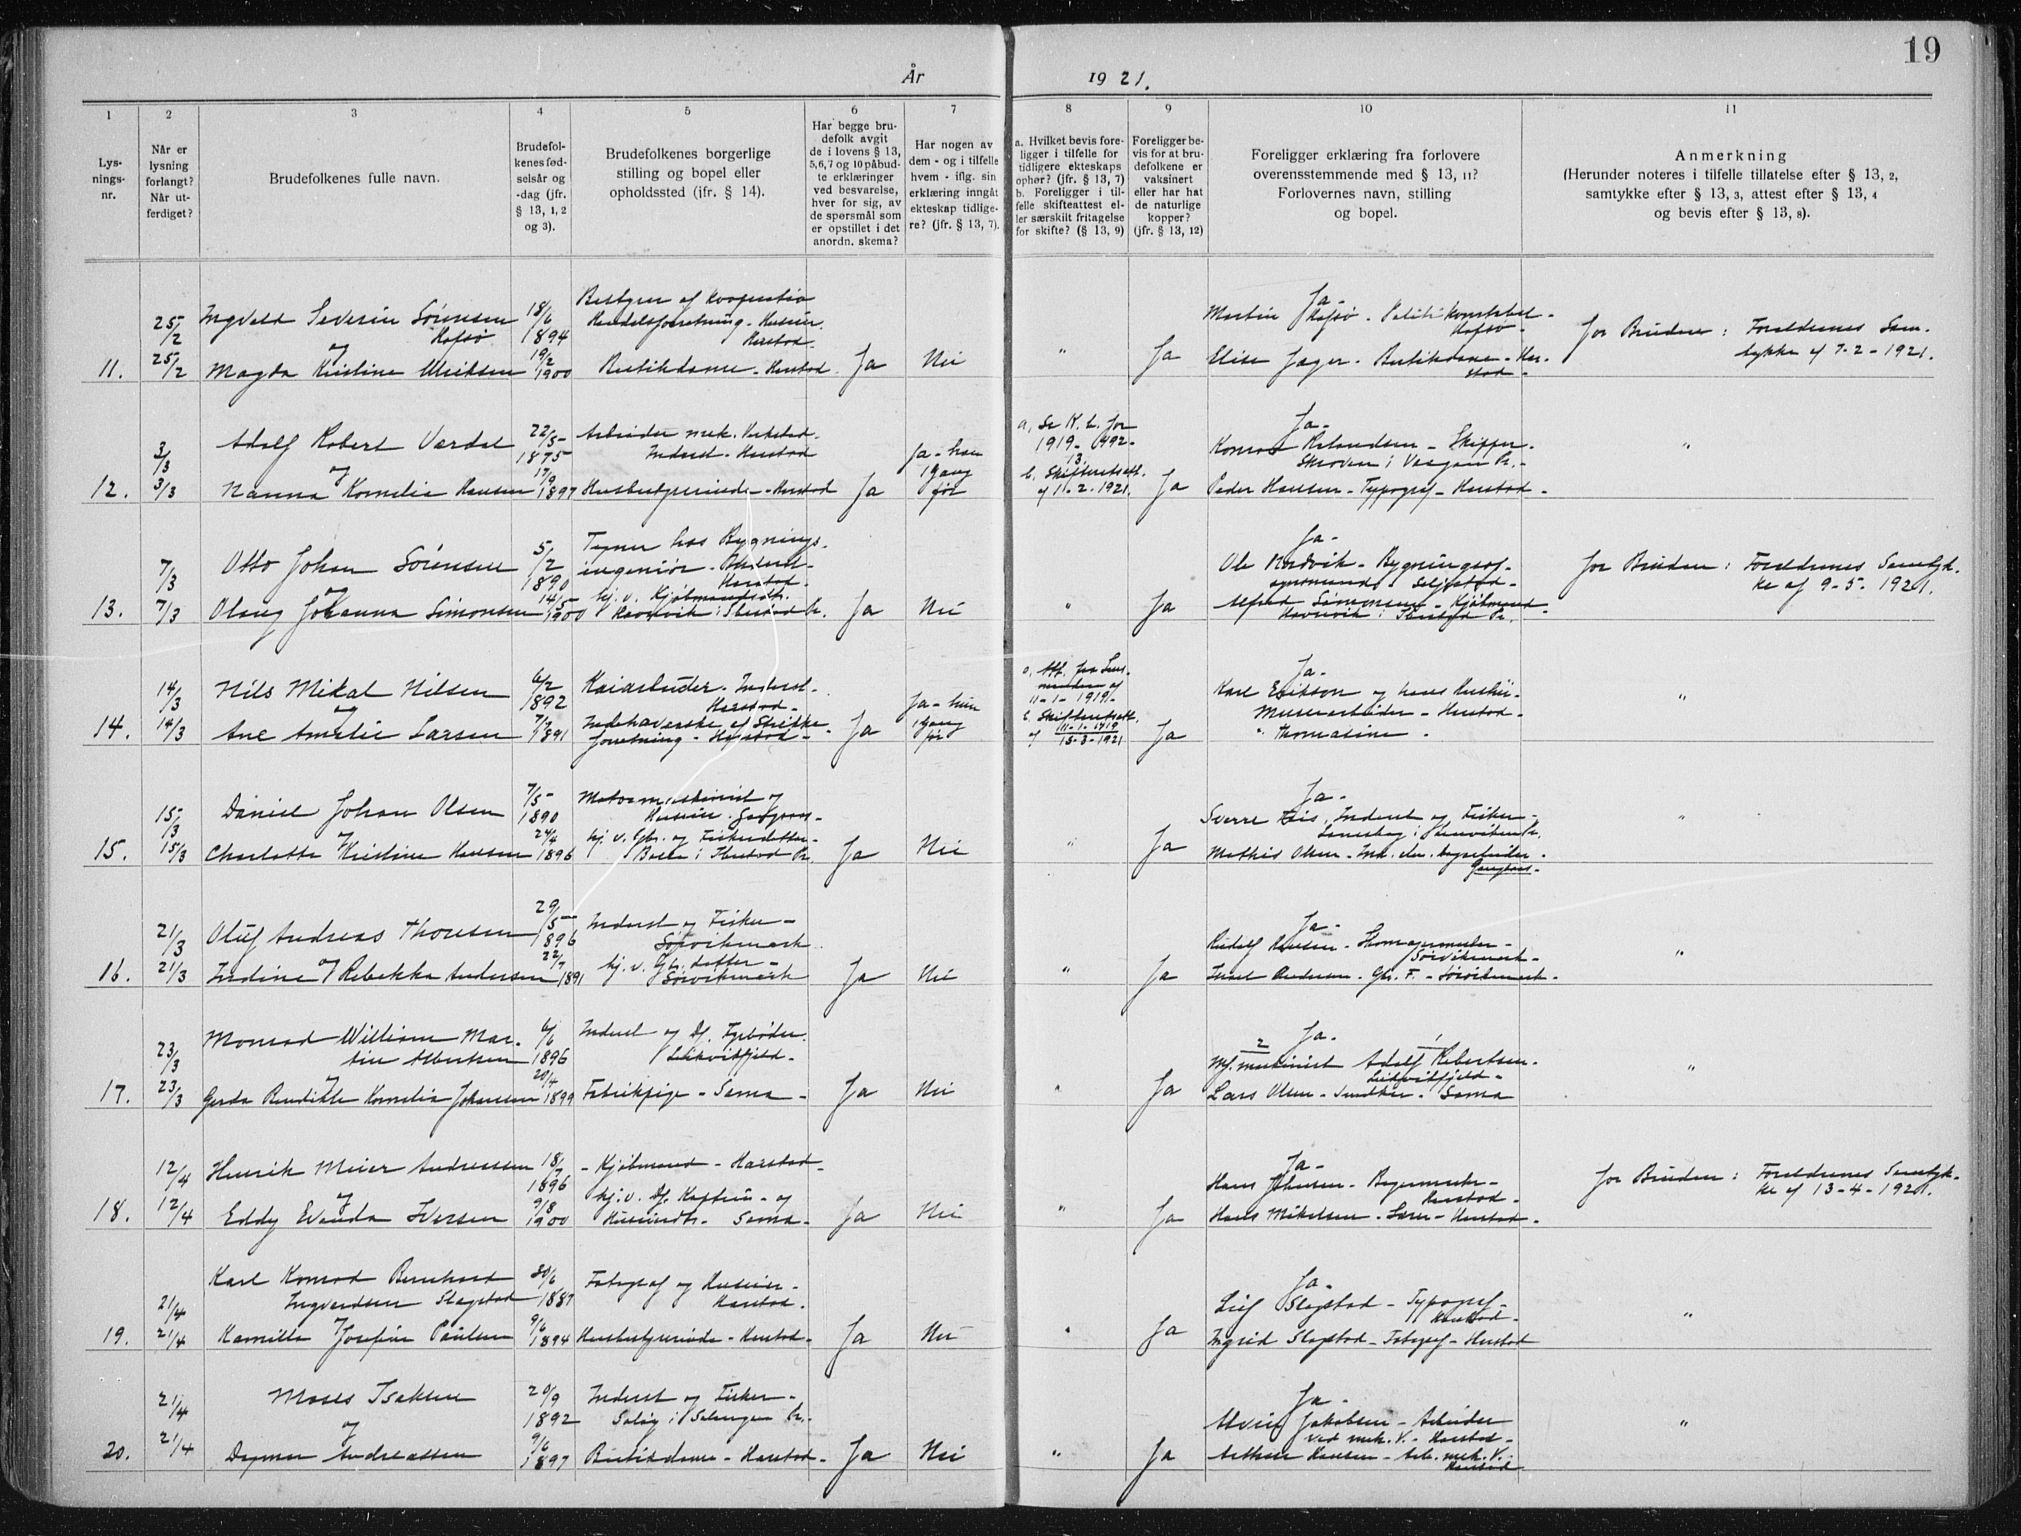 19
År 1921.
1 2 3 4 5 6 7 8 9 10 11
Lys-
nings-
nr.
Når er
lysning
forlangt?
Når ut-
ferdiget?
Brudefolkenes fulle navn.
Brudefol-
kenes fød-
selsår og
-dag (jfr.
§ 13, 1, 2
og 3).
Brudefolkenes borgerlige
stilling og bopel eller
opholdssted (jfr. § 14).
Har begge bru-
defolk avgit
de i lovens § 13,
5,6,7 og 10 påbud-
te erklæringer
ved besvarelse,
hver for sig, av
de spørsmål som
er opstillet i det
anordn. skema?
Har nogen av
dem - og i tilfelle
hvem - iflg. sin
erklæring inngåt
ekteskap tidlige-
re? (jfr. § 13, 7).
a. Hvilket bevis fore-
ligger i tilfelle for
tidligere ekteskaps
ophør? (jfr. § 13, 7)
b. Foreligger i til-
felle skifteattest el-
ler særskilt fritagelse
for skifte? (§ 13, 9)
Foreligger be-
vis for at bru-
defolkene er
vaksinert
eller har hat
de naturlige
kopper?
(jfr. § 13, 12)
Foreligger erklæring fra forlovere
overensstemmende med § 13, 11?
Forlovernes navn, stilling
og bopel.
Anmerkning
(Herunder noteres i tilfelle tillatelse efter § 13, 2,
samtykke efter § 13, 3, attest efter § 13, 4
og bevis efter § 13, 8).
11.
25/2
25/2
Ingvald Severin Sørensen
Hofsø
og
Magda Kristine Ulriksen
18/6
1894
19/2
1900
Bestyrer af Kooperativ
Handelsforretning - Huseier.
Harstad.
Butikdame - Harstad.
Ja
Nei
"
Ja
Ja -
Martin Hofsø - Politikonstabel -
Hofsø -
Elise Jæger - Butikdame - Har-
stad -
for Bruden: Foreldrenes Sam-
tykke af 7-2-1921.
12.
3/3
3/3
Adolf Robert Værdal
og
Nanna Kornelia Hansen
22/5-
1875
17/9
1897
Arbeider mek. Verksted -
Inderst - Harstad
Husbestyrerinde - Harstad
Ja
Ja - han
1 gang
før
a. Se K. b. for
1919 - 492 -
13.
b. Skifteretsatt.
af 11-2-1921.
Ja
Ja -
Konrad Rolandsen - Skipper -
Skroven i Vaagan Pr. -
Peder Hansen - Typograf - Harstad -
"
13.
7/3
7/3
Otto Johan Sørensen
og
Olaug Johanna Simonsen
5/2
1890
14/5
1900
Tegner hos Bygnings-
ingeniør - Inderst -
Harstad -
hj. v. Kjøbmandsdtr.
Havnvik i Ibestad Pr.
Ja
Nei
"
Ja
Ja -
Ole Nordvik - Bygningsop-
synsmand - Seljestad -
Alfred Simonsen - Kjøbmand -
Havnvik i Ibestad Pr.
for Bruden: Foreldrenes Samtyk-
ke af 9-5-1921.
14.
14/3
14/3
Nils Mikal Nilsen
og
Ane Amalie Larsen
6/2
1892
7/7
1891
Kaiarbeider - Inderst -
Harstad -
Indehaverske af Strikke-
forretning - Harstad -
Ja
Ja - hun
1 gang
før
a. Att. fra Lens-
manden af
11-1-1919 -
b. Skifteretsatt.
af 11-1-1919
15-3-1921
Ja
Ja -
Karl Erikson og hans Hustru -
Murerarbeider - Harstad -
" Thomasine -
"
15.
15/3
15/3
Daniel Johan Olsen
og
Charlotte Kristine Hansen
7/5-
1890
24/4
1896
Motormaskinist og
Huseier. Gangsaas -
hj. v. Gbr. og Fiskerdatter -
i Ibestad Pr.
Ja
Nei
"
Ja
Ja -
Sverre Inderst og Fisker -
i Pr.
Mathis Olsen - Ind. -
Gangsaas -
"
16.
21/3
21/3
Oluf Andreas Thoresen
og
Indine Rebekka Andersen
29/5-
1896
22/7
1891
Inderst og Fisker -
Sørvikmark
hj. v. Gbr. datter -
Sørvikmark
Ja
Nei
"
Ja
Ja -
Rudolf Hansen - Skomagermester -
Sørvikmark -
Andersen - Gbr. F. - Sørvikmark -
"
17.
23/3
23/3
Monrad William Mar-
tin Albertsen
og
Gerda Bendikte Kornelia Johansen
6/6
1896
20/4
1899
Inderst og Df. Fyrbøder
Fabrikpige - Sama -
Ja
Nei
"
Ja
Ja -
2 1
Mf. maskinist Adolf Robertsen -
Lars Olsen - Snedker - Sama
"
18.
12/4
12/4
Henrik Meier Andreassen
og
Eddy Evanda Iversen
18/7
1896
9/8
1900
- Kjøbmand - Harstad -
hj. v. Df. Kaptein - og
Huseierdtr. - Sama -
Ja
Nei
"
Ja
Ja -
Hans Johnsen - Bagermester -
Harstad -
Hans Mikelsen - Lærer - Harstad -
for Bruden: Foreldrenes Samtyk-
ke af 13-4-1921.
19.
21/4
21/4
Karl Konrad Bernhard
Ingvardsen Slagstad
og
Kamilla Josefine Paulsen
30/6
1887
9/6
1894
Fotograf og Huseier -
Harstad.
Husbestyrerinde - Harstad -
Ja
Nei
"
Ja
Ja -
Leif Slagstad - Typograf -
Harstad -
Ingrid Slagstad - Fotograf - Harstad
"
20.
21/4
21/4
Moses Isaksen
og
Dagmar Andreassen
20/9
1892
9/6
1897
Inderst og Fisker -
Saløy i Salangen Pr. -
Butikdame - Harstad -
Ja
Nei
"
Ja
Ja -
Alvin Jakobsen - Arbeider
ved mek. V. - Harstad -
Arthur Hansen - Arb. mek. V. -
Harstad
"